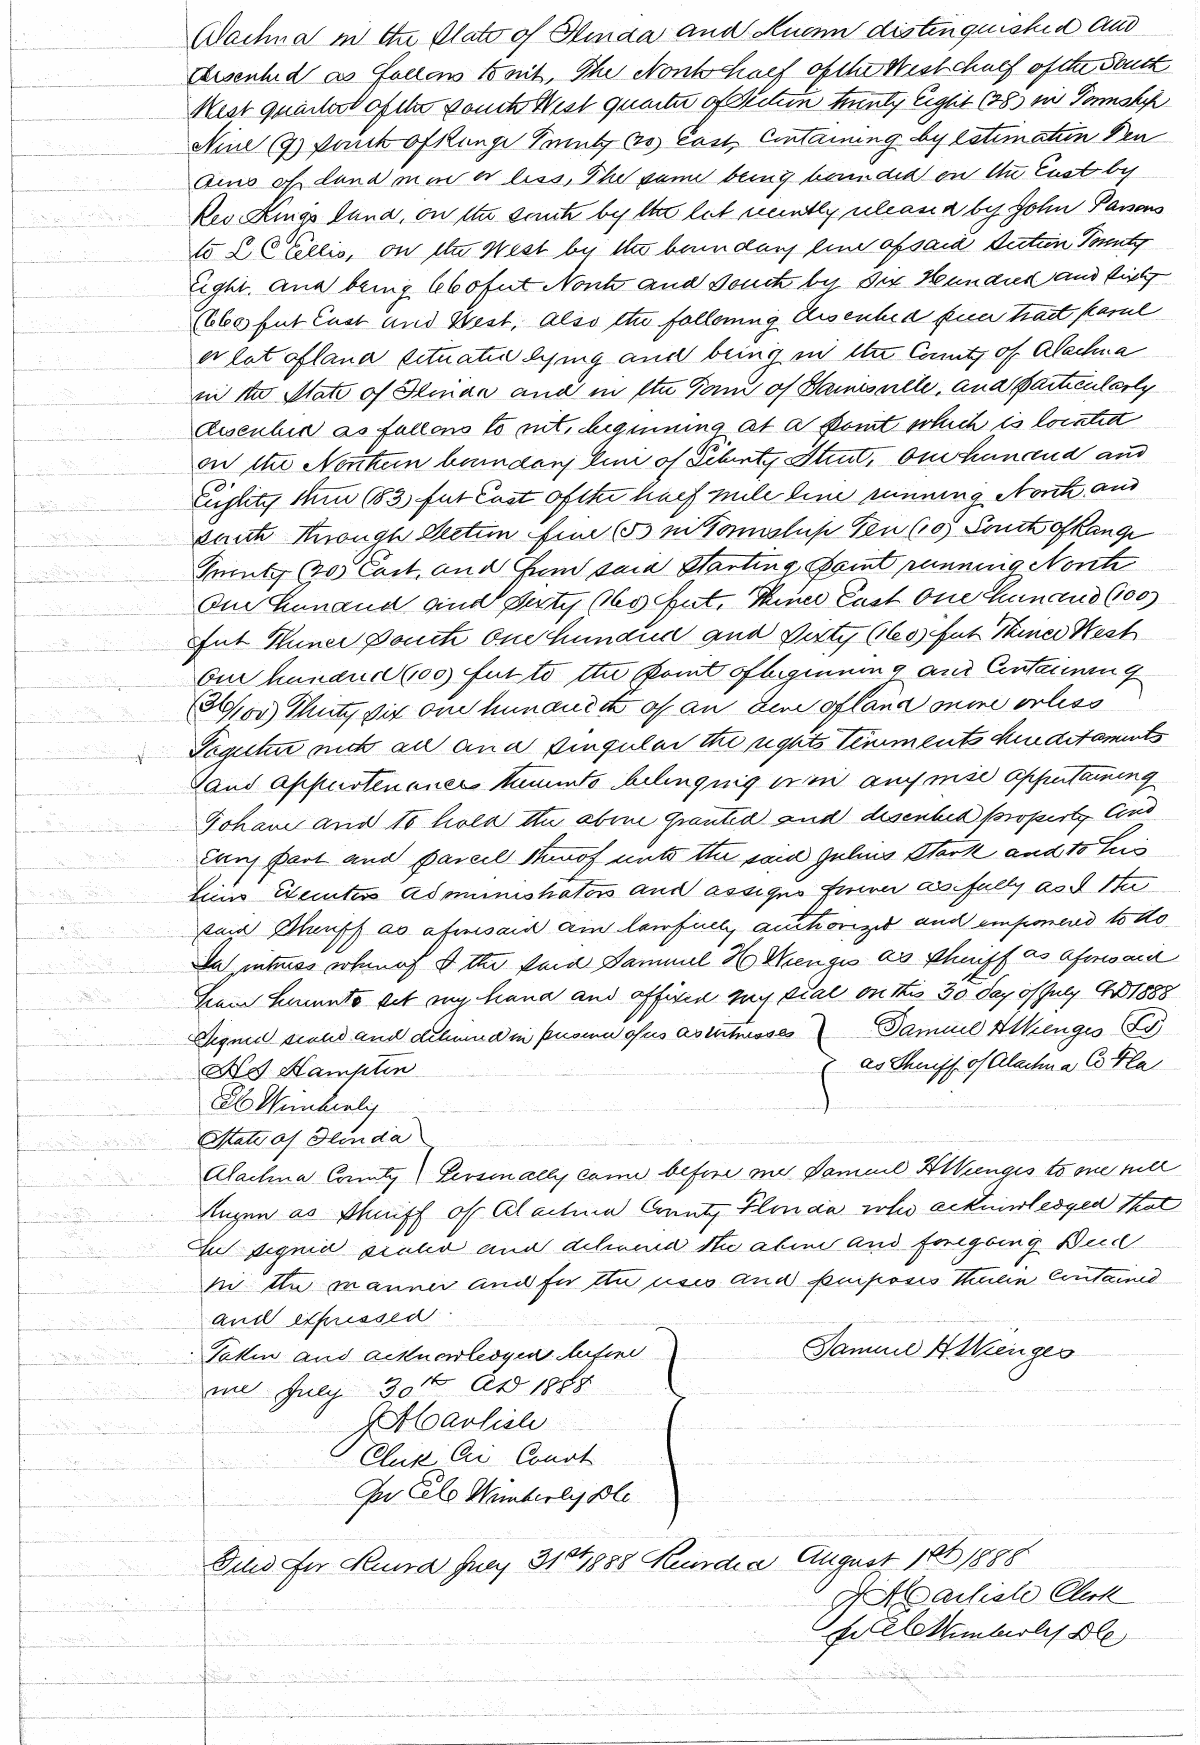 Alachua in the State of Florida and Known distinguished and
described as follows to wit, The North half of the West half of the South
West quarter of the south West quarter of Section twenty Eight (28) in Township
Nine (9) South of Range Twenty (20) East, Containing by estimation Ten
acres of land more or less, The same being bounded on the East by
Rev Kings land, on the south by the lot recently released by John Parsons
to L C Ellis, on the West by the boundary line of said Section Twenty
Eight. and being 660 feet North and South by Six Hundred and Sixty
(660) feet East and West, also the following described piece tract parcel
or lot of land situated lying and being in the County of Alachua
in the State of Florida and in the Town of Gainesville, and particularly
described as follows to wit, beginning at a point which is located
on the Northern boundary line of Liberty Street, One hundred and
Eighty three (183) feet East of the half mile line running North and
south through Section five (5) in Township Ten (10) South of Range
Twenty (20) East, and from said Starting Point running North
One hundred and Sixty (160) feet, Thence East One hundred (100)
feet Thence South One hundred and Sixty (160) feet Thence West
One hundred (100) feet to the point of beginning and Containing
(36/100) Thirty Six one hundredth of an acre of land more or less
Together with all and singular the rights Tenements hereditaments
and appurtenances thereunto belonging or in any wise appertaining
To have and to hold the above granted and described property and
every part and parcel thereof unto the said Julius Stark and to his
heirs Executors administrators and assigns forever as fully as I the
said Sheriff as aforesaid am lawfully authorized and empowered to do
In witness whereof I the said Samuel H Wienges as Sheriff as aforesaid
have hereunto set my hand and affixed my seal on this 30 day of July AD 1888
Signed sealed and delivered in presence of us as witnesses } Samuel H Wienges (LS)
Hampton } as Sheriff of Alachua Co Fla
Wimberly
State of Florida
Alachua County } Personally came before me Samuel H Wienges to me well
Known as Sheriff of Alachua County Florida who acknowledged that
he signed sealed and delivered the above and foregoing Deed
in the manner and for the uses and purposes therein contained
and expressed
Taken and acknowledged before } Samuel H. Wienges
me July 30th AD 1888
J A Carlisle
Clerk Cir Court
Per Wimberly DC
Filed for Record July 31st 1888 Recorded August 1st 1888
J A Carlisle Clerk
Per Wimberly DC